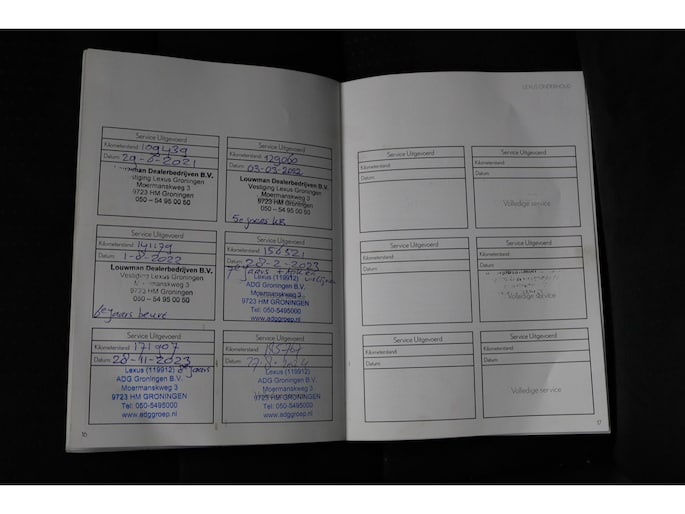 LEXUS ONDERHOUD
Service Uitgevoerd
Kilometerstand: 109439
Datum: 29-6-2021
Louwman Dealerbedrijven B.V.
Vestiging Lexus Groningen
Moermanskweg 3
9723 HM Groningen
050 – 54 95 00 50
Service Uitgevoerd
Kilometerstand: 129060
Datum: 03-03-2022
Louwman Dealerbedrijven B.V.
Vestiging Lexus Groningen
Moermanskweg 3
9723 HM Groningen
050 – 54 95 00 50
5e jaars
Service Uitgevoerd
Kilometerstand: 141179
Datum: 1-8-2022
Louwman Dealerbedrijven B.V.
Vestiging Lexus Groningen
Moermanskweg 3
9723 HM Groningen
050 – 54 95 00 50
6e jaars beurt
Service Uitgevoerd
Kilometerstand: 156521
Datum: 28-2-2023
7e jaars +
Lexus (119912)
ADG Groningen B.V.
Moermanskweg 3
9723 HM GRONINGEN
Tel: 050-5495000
www.adggroep.nl
Service Uitgevoerd
Kilometerstand: 171907
Datum: 28-11-2023
8e jaars
Lexus (119912)
ADG Groningen B.V.
Moermanskweg 3
9723 HM GRONINGEN
Tel: 050-5495000
www.adggroep.nl
Service Uitgevoerd
Kilometerstand:
Datum:
Lexus (119912)
ADG Groningen B.V.
Moermanskweg 3
9723 HM GRONINGEN
Tel: 050-5495000
www.adggroep.nl
16
Service Uitgevoerd
Kilometerstand:
Datum:
Service Uitgevoerd
Kilometerstand:
Datum:
Volledige service
Service Uitgevoerd
Kilometerstand:
Datum:
Service Uitgevoerd
Kilometerstand:
Datum:
Volledige service
Service Uitgevoerd
Kilometerstand:
Datum:
Service Uitgevoerd
Kilometerstand:
Datum:
Volledige service
17